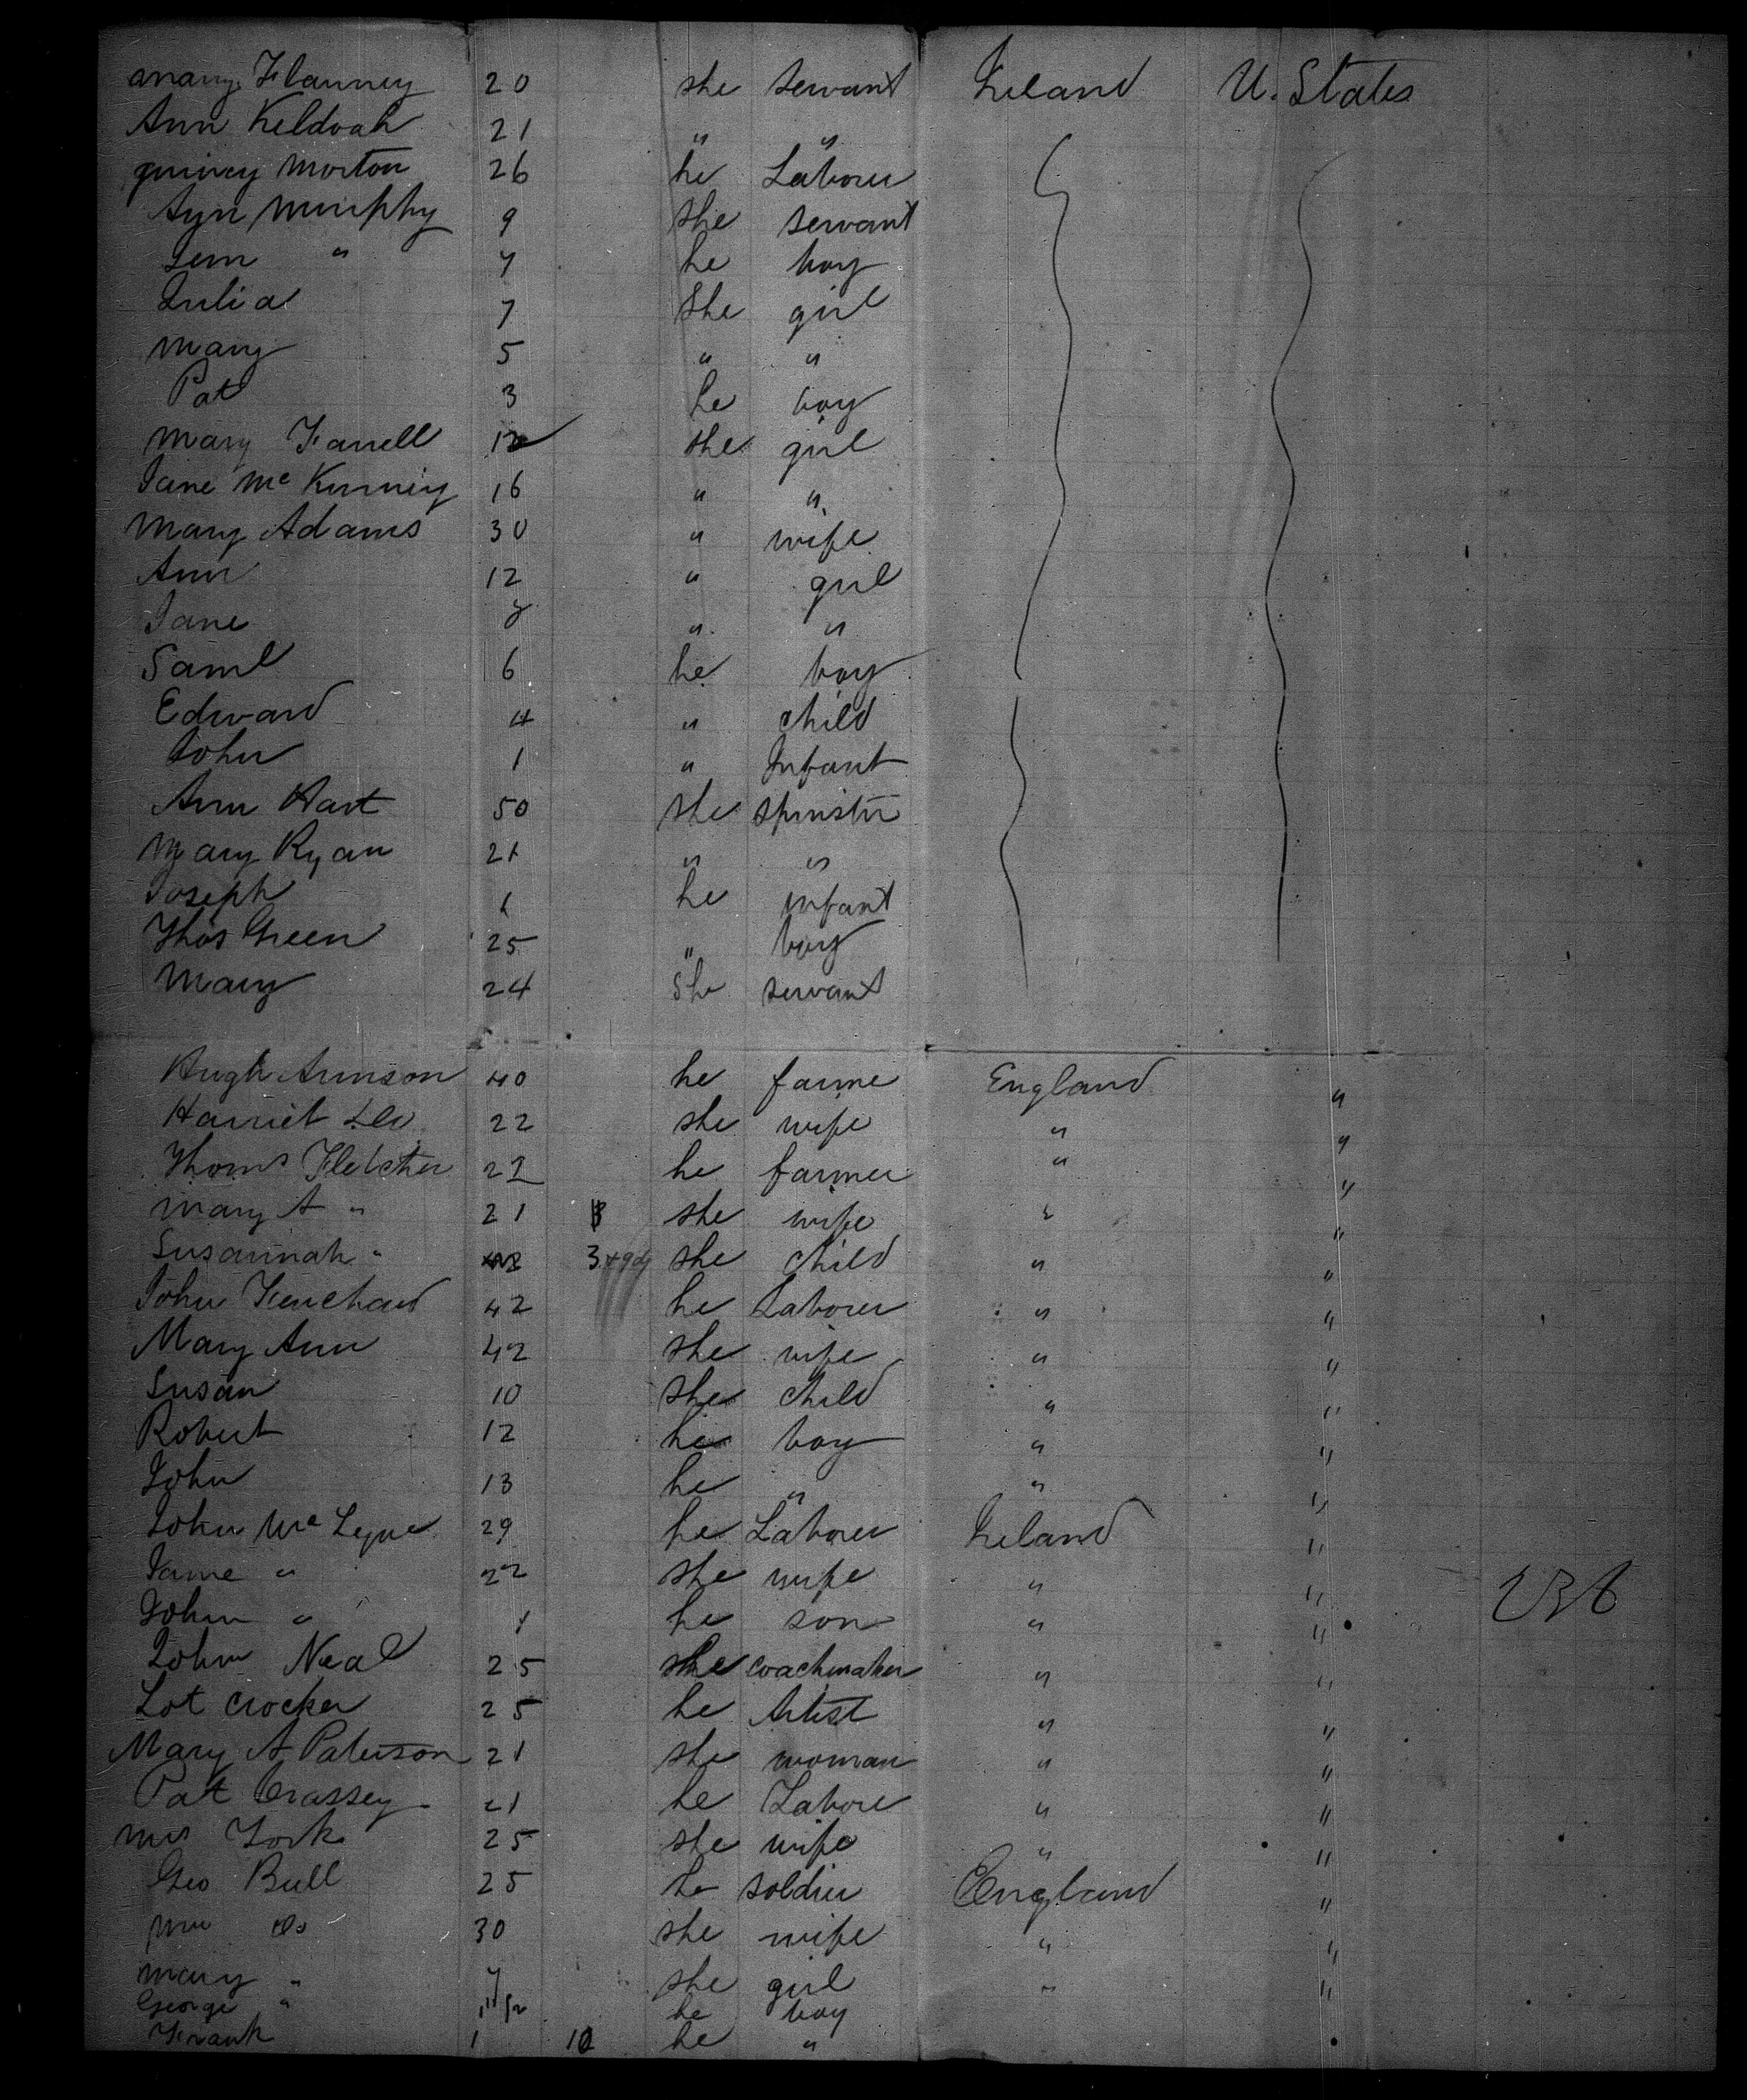 mary Flanney 20 she servant Ireland U. States
Ann Keldoah 21 " "
quincy Morton 26 he Laborer
Ayn Murphy 9 she servant
Jem " 7 he boy
Julia 7 she girl
Mary 5 " "
Pat 3 he boy
Mary Farrell 12 she girl
Jane Mc Kinney 16 " "
Mary Adams 30 " wife
Ann 12 " girl
Jane 8 " "
Saml 6 he boy
Edward 4 " child
John 1 " Infant
Ann Hart 50 she spinster
Mary Ryan 21 " "
Joseph 1 he infant
Thos Green 25 " boy
Mary 24 she servant
Hugh Arinson 40 he farme England "
Harriet 22 she wife " "
Thoms Fletcher 22 he farmer " "
Mary A " 21 she wife " "
Susannah " 3 she child " "
John 42 he Laborer " "
Mary Ann 42 she wife " "
Susan 10 she child " "
Robert 12 he boy " "
John 13 he " " "
John Mc 29 he Laborer Ireland "
Jame " 22 she wife " "
John " 1 he son " " 236
John Neal 25 she coachmaker " "
Lot Crocker 25 he Artist " "
Mary A Paterson 21 she woman " "
Pat Crassey 21 he Labore " "
Mrs York 25 she wife " "
Geo Bull 25 he soldier England "
Mrs Do 30 she wife " "
Mary " 4 she girl " "
George " he boy
Frank 1 10 he "